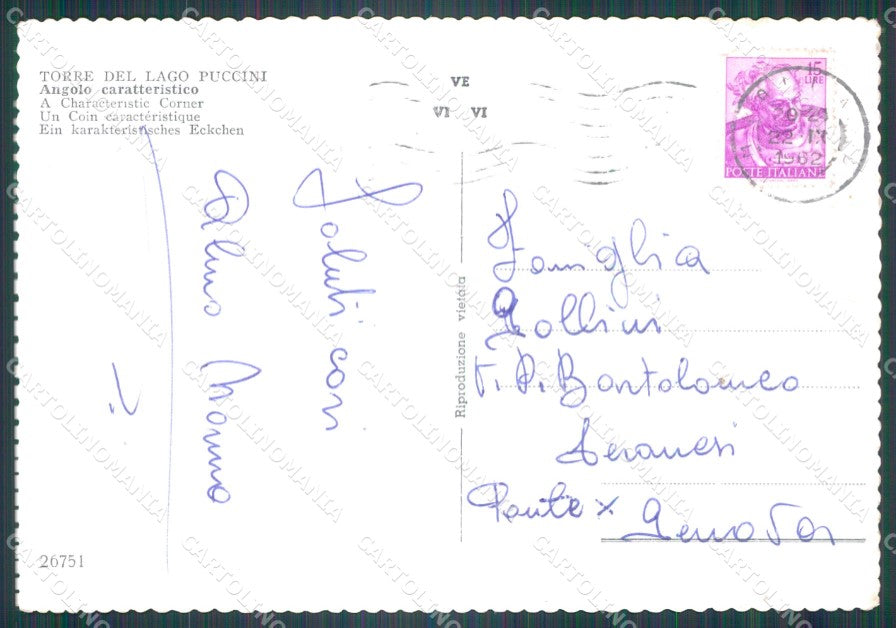 TORRE DEL LAGO PUCCINI
Angolo caratteristico
A Characteristic Corner
Un Coin caractéristique
Ein karakteristisches Eckchen
VE
VI VI
15
LIRE
22
1962
POSTE ITALIANE
Saluti cari
Riproduzione vietata
Famiglia
Gollini
Bartolomeo
Ponte X Genova
26751
CARTOLINOMANIA